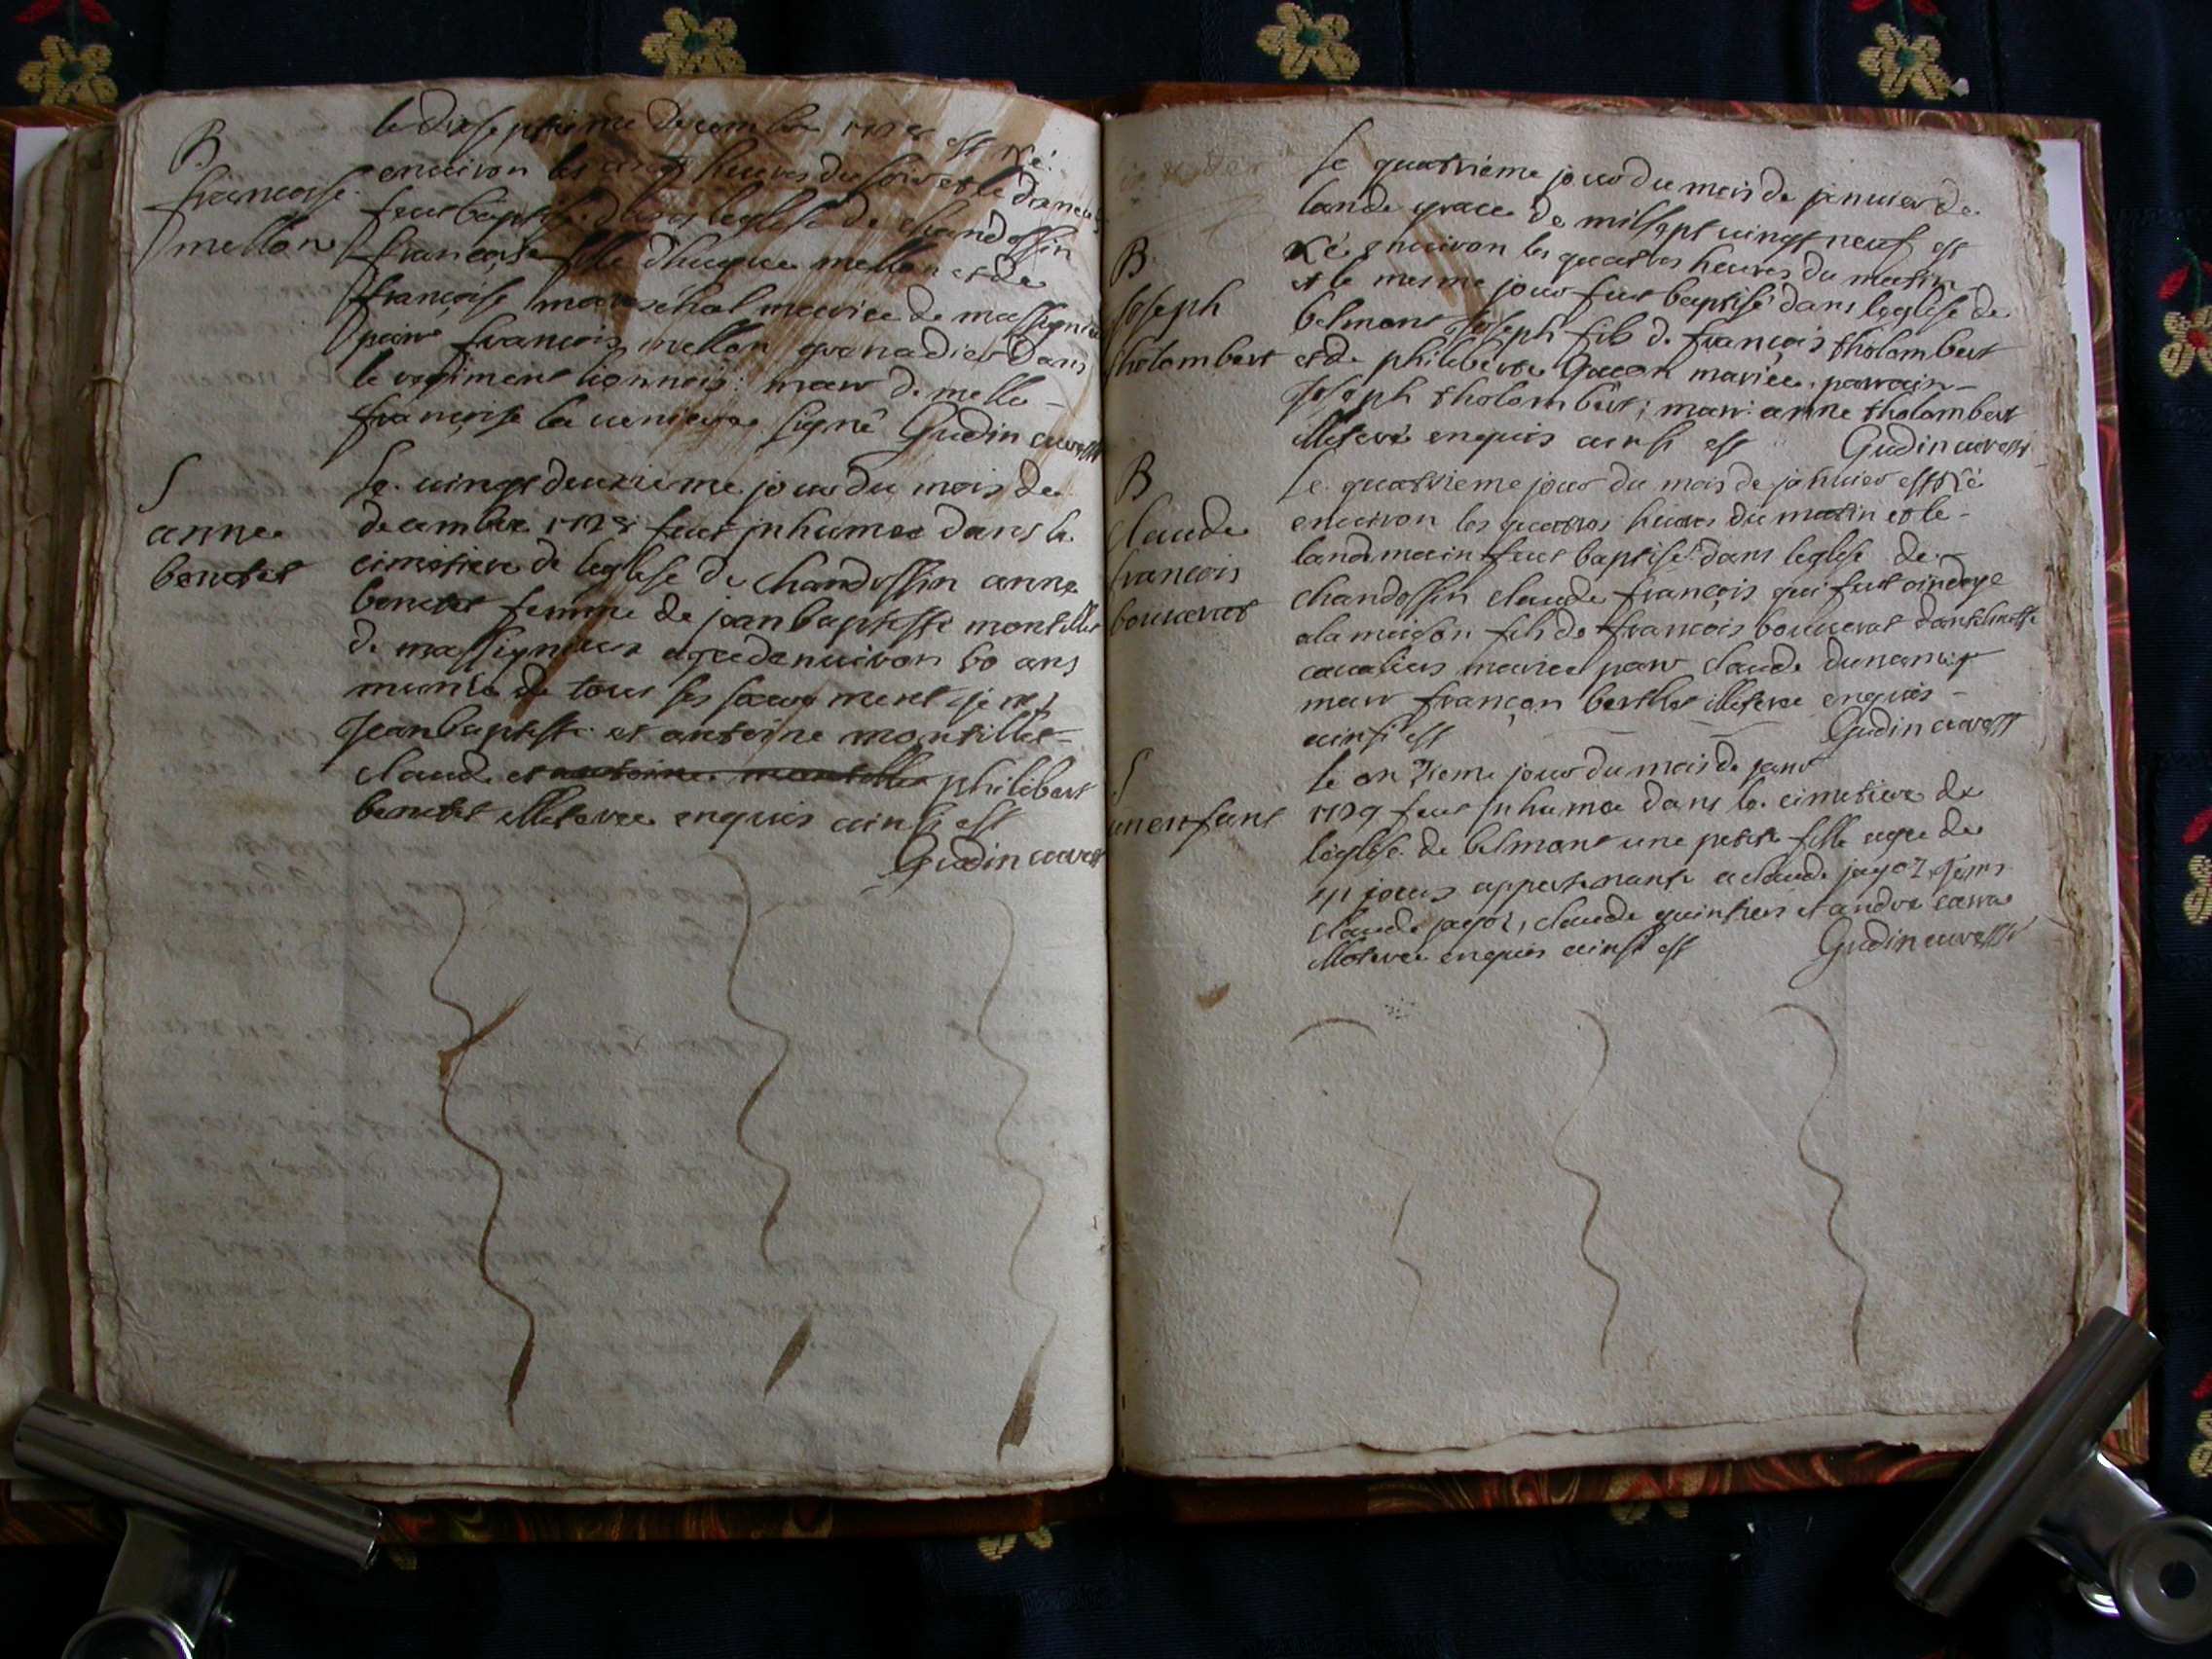 B
francoise
mellon
le dixseptieme decembre 1728 est né
environ les heures du soir et le
fut baptise dans leglise de chandossin
francoise fille d'hugue mellon et de
françoise mareschal mariee de massignieu
parr francois mellon grenadier dans
le regiment lionnois: marr de melle
francoise la signé Gudin curé
S
anne
benetet
le vingt deuxieme jour du mois de
decembre 1728 fut inhumee dans le
cimetiere de leglise de chandossin anne
benetet femme de jean baptiste montillet
de massignieux agee denviron 60 ans
munie de tous ses sacrements
Jean baptiste et antoine montillet
claude et antoine montillet philibert
benetet illeteree enquis ainsi est
Gudin curé
B
Joseph
tholombert
le quatrieme jour du mois de janvier de
lan de grace de mil sept vingt neuf est
né environ les quatres heures du matin
et le mesme jour fut baptisé dans leglise de
belmont Joseph fils de françois tholombert
et de philiberte Gacon mariee, parrain
Joseph tholombert; marr: anne tholombert
illeteré enquis ainsi est Gudin curé
B
claude
francois
bouverat
le quatrieme jour du mois de janvier est né
environ les quatres heures du matin et le
landemain fut baptisé dans leglise de
chandossin claude françois qui fut ondoye
a la maison fils de francois bouverat
mariee parr claude
marr françon berthet illeteree enquis
ainsi est Gudin curé
S
un enfant
le onzieme jour du mois de janv
1729 fut inhumee dans le cimetiere de
leglise de belmont une petite fille agee de
jours appartenante a claude jagoz
claude jagoz, claude quintrer et andre carra
illeteree enquis ainsi est Gudin curé